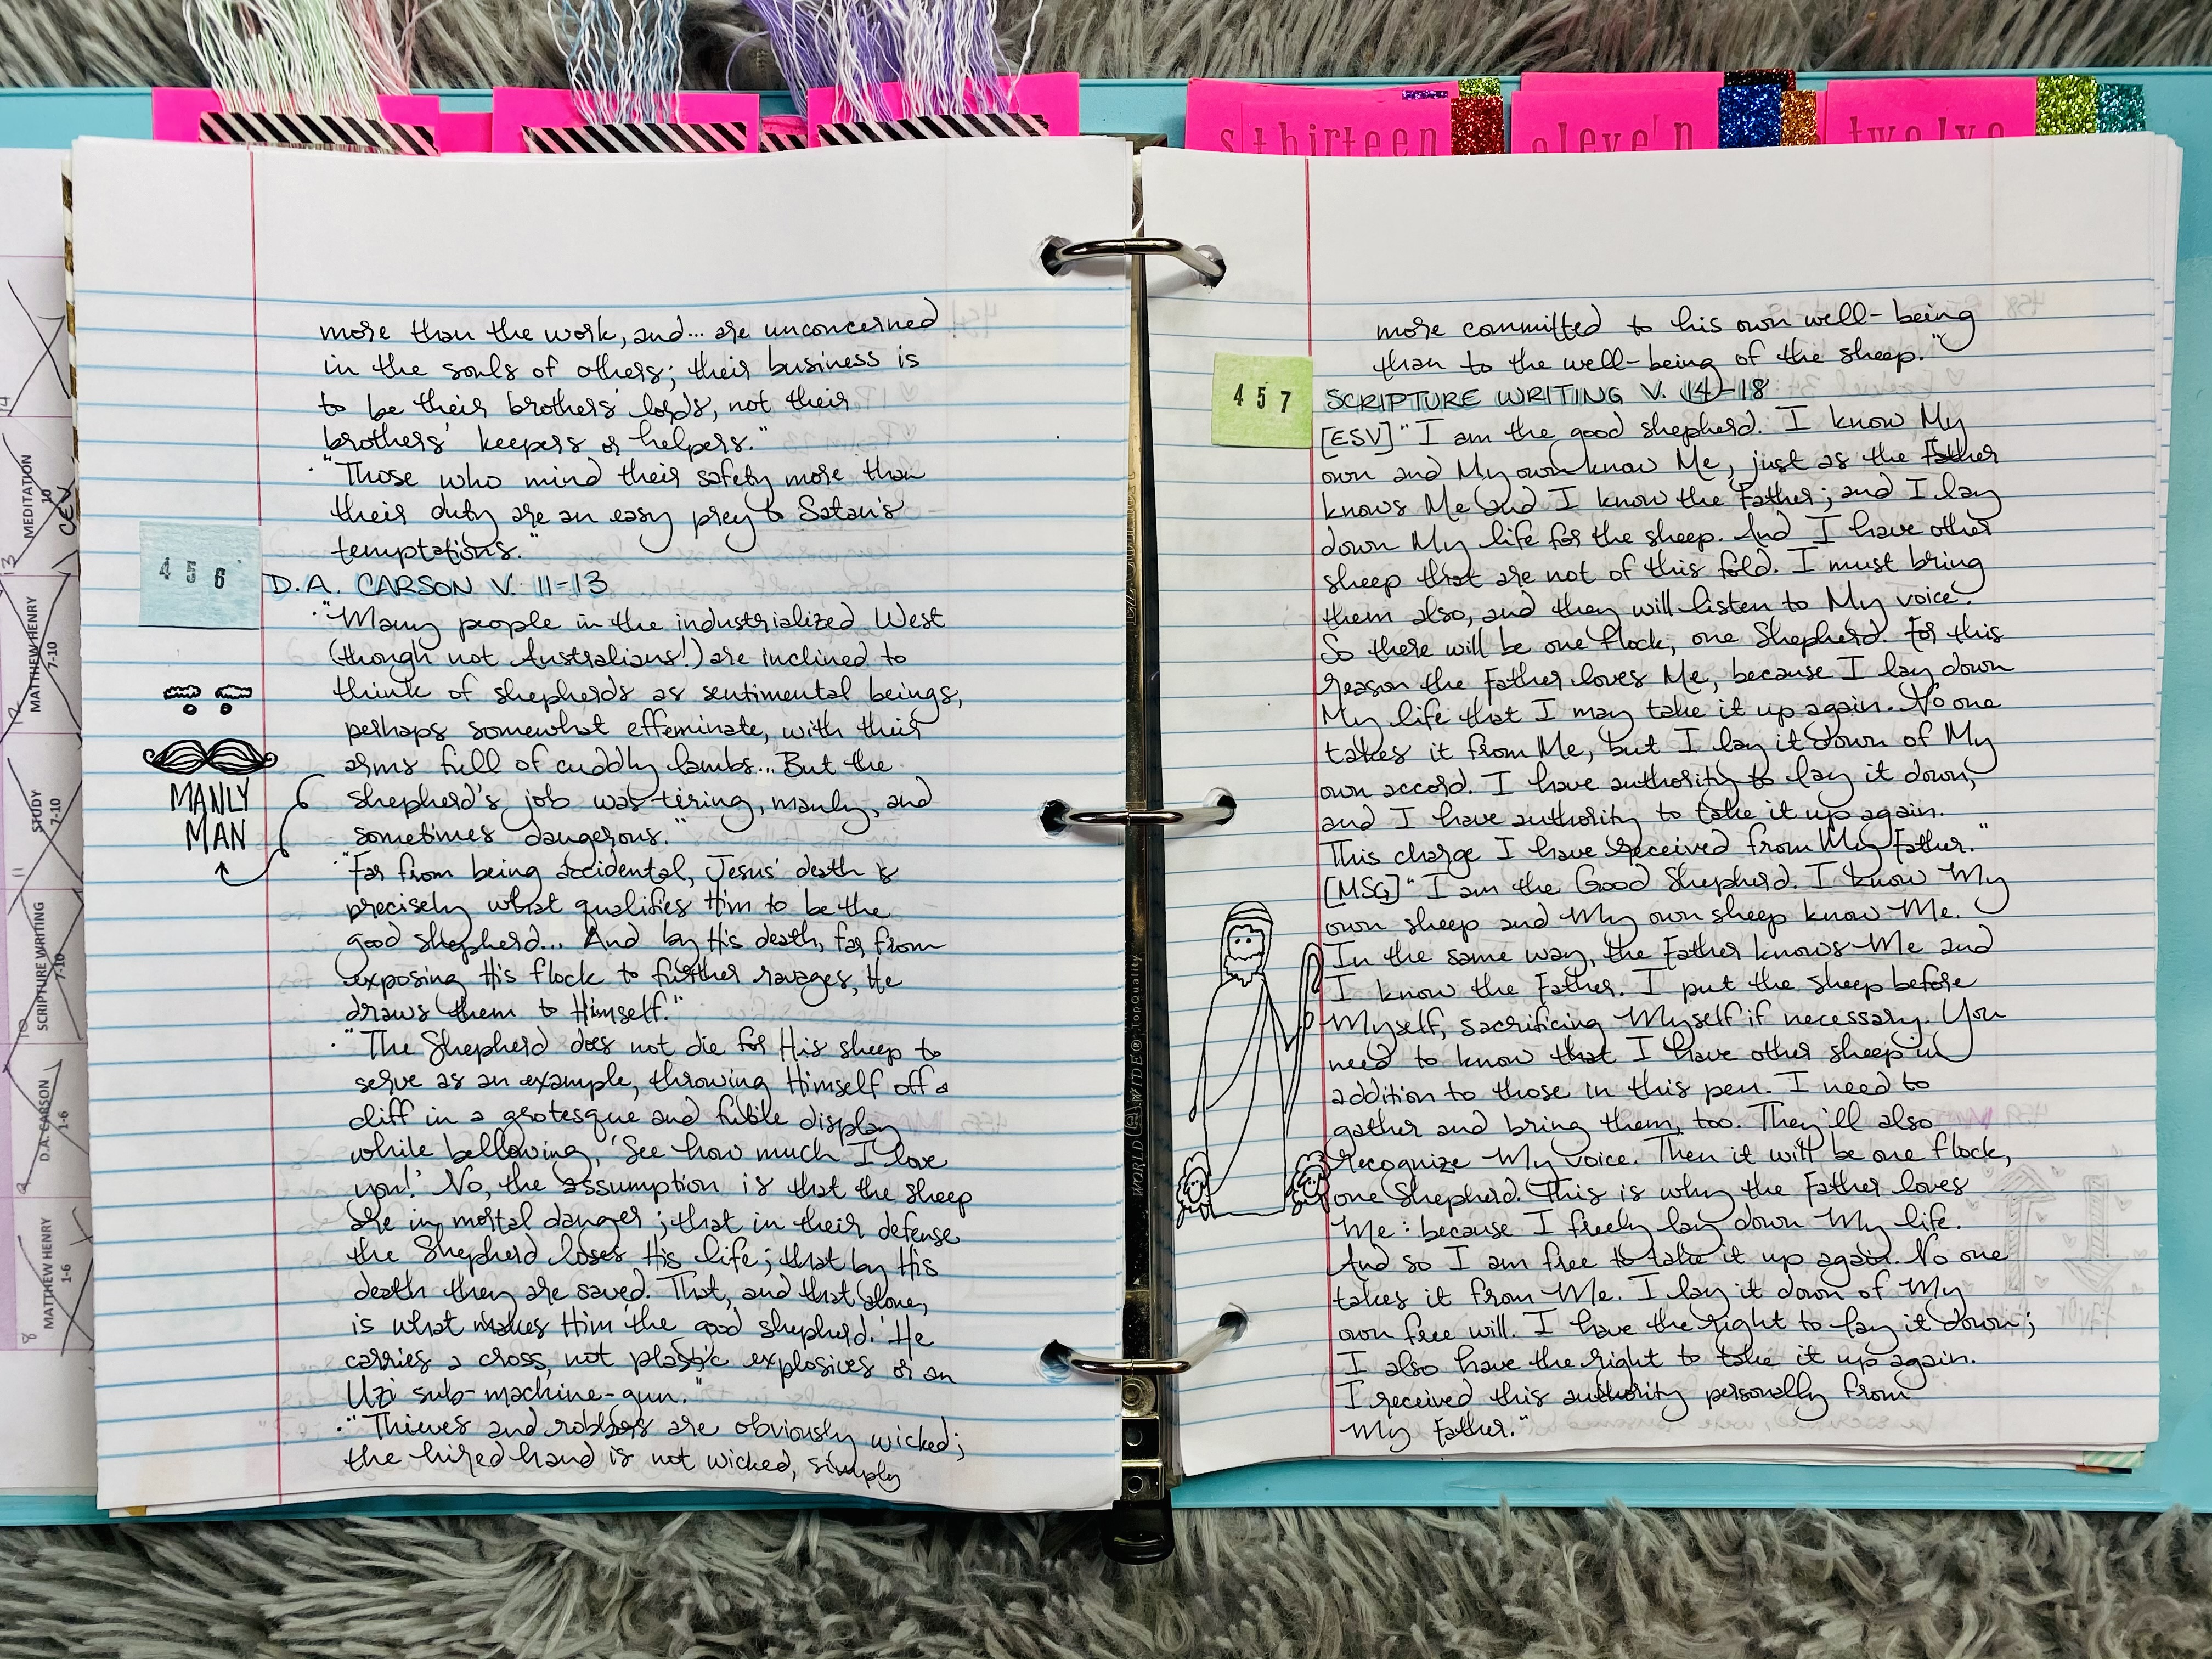 sthirteen
eleven
twelve
more than the work, and... are unconcerned
in the souls of others; their business is
to be their brothers' lords, not their
brothers' keepers or helpers."
· "Those who mind their safety more than
their duty are an easy prey to Satan's
temptations."
456
D.A. CARSON V. 11-13
· "Many people in the industrialized West
(though not Australians!) are inclined to
think of shepherds as sentimental beings,
perhaps somewhat effeminate, with their
arms full of cuddly lambs... But the
shepherd's job was tiring, manly, and
sometimes dangerous."
MANLY
MAN
· "Far from being accidental, Jesus' death is
precisely what qualifies Him to be the
good shepherd... And by His death, far from
exposing His flock to further ravages, He
draws them to Himself."
· "The Shepherd does not die for His sheep to
serve as an example, throwing Himself off a
cliff in a grotesque and futile display
while bellowing, 'See how much I love
you!' No, the assumption is that the sheep
are in mortal danger; that in their defense
the Shepherd loses His life; that by His
death they are saved. That, and that alone,
is what makes Him 'the good shepherd.' He
carries a cross, not plastic explosives or an
Uzi sub-machine-gun."
· "Thieves and robbers are obviously wicked;
the hired hand is not wicked, simply
more committed to his own well-being
than to the well-being of the sheep."
457
SCRIPTURE WRITING V. 14-18
[ESV] "I am the good shepherd. I know My
own and My own know Me, just as the Father
knows Me and I know the Father; and I lay
down My life for the sheep. And I have other
sheep that are not of this fold. I must bring
them also, and they will listen to My voice.
So there will be one flock, one Shepherd. For this
reason the Father loves Me, because I lay down
My life that I may take it up again. No one
takes it from Me, but I lay it down of My
own accord. I have authority to lay it down,
and I have authority to take it up again.
This charge I have received from My Father."
[MSG] "I am the Good Shepherd. I know My
own sheep and My own sheep know Me.
In the same way, the Father knows Me and
I know the Father. I put the sheep before
Myself, sacrificing Myself if necessary. You
need to know that I have other sheep in
addition to those in this pen. I need to
gather and bring them, too. They'll also
recognize My voice. Then it will be one flock,
one Shepherd. This is why the Father loves
Me: because I freely lay down My life.
And so I am free to take it up again. No one
takes it from Me. I lay it down of My
own free will. I have the right to lay it down;
I also have the right to take it up again.
I received this authority personally from
My Father."
MEDITATION
10
CEV
13
MATTHEW HENRY
7-10
12
STUDY
7-10
11
SCRIPTURE WRITING
7-10
10
D.A. CARSON
1-6
9
MATTHEW HENRY
1-6
8
WORLD WIDE® Top Quality